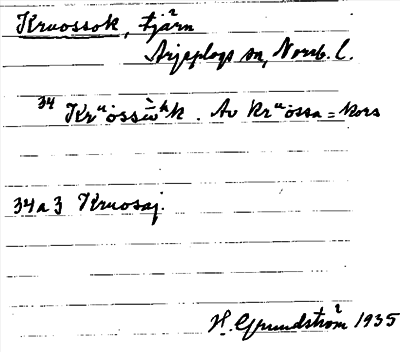 Kruossok, tjärn
Arjeplogs sn, Norrb. l.
34 Krᵘössŭ̀ʰk. Av krᵘössa = kors
34a3 Kruosaj.
H. Grundström 1935